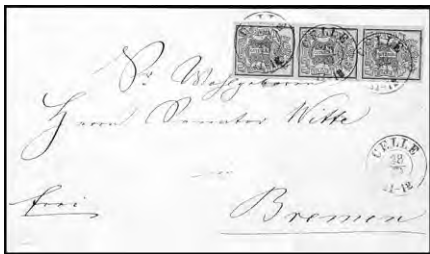 CELLE
CELLE
CELLE
11-12
Sr Wohlgeboren
Herrn Senator Witte
CELLE
28
11-12
frei
Bremen